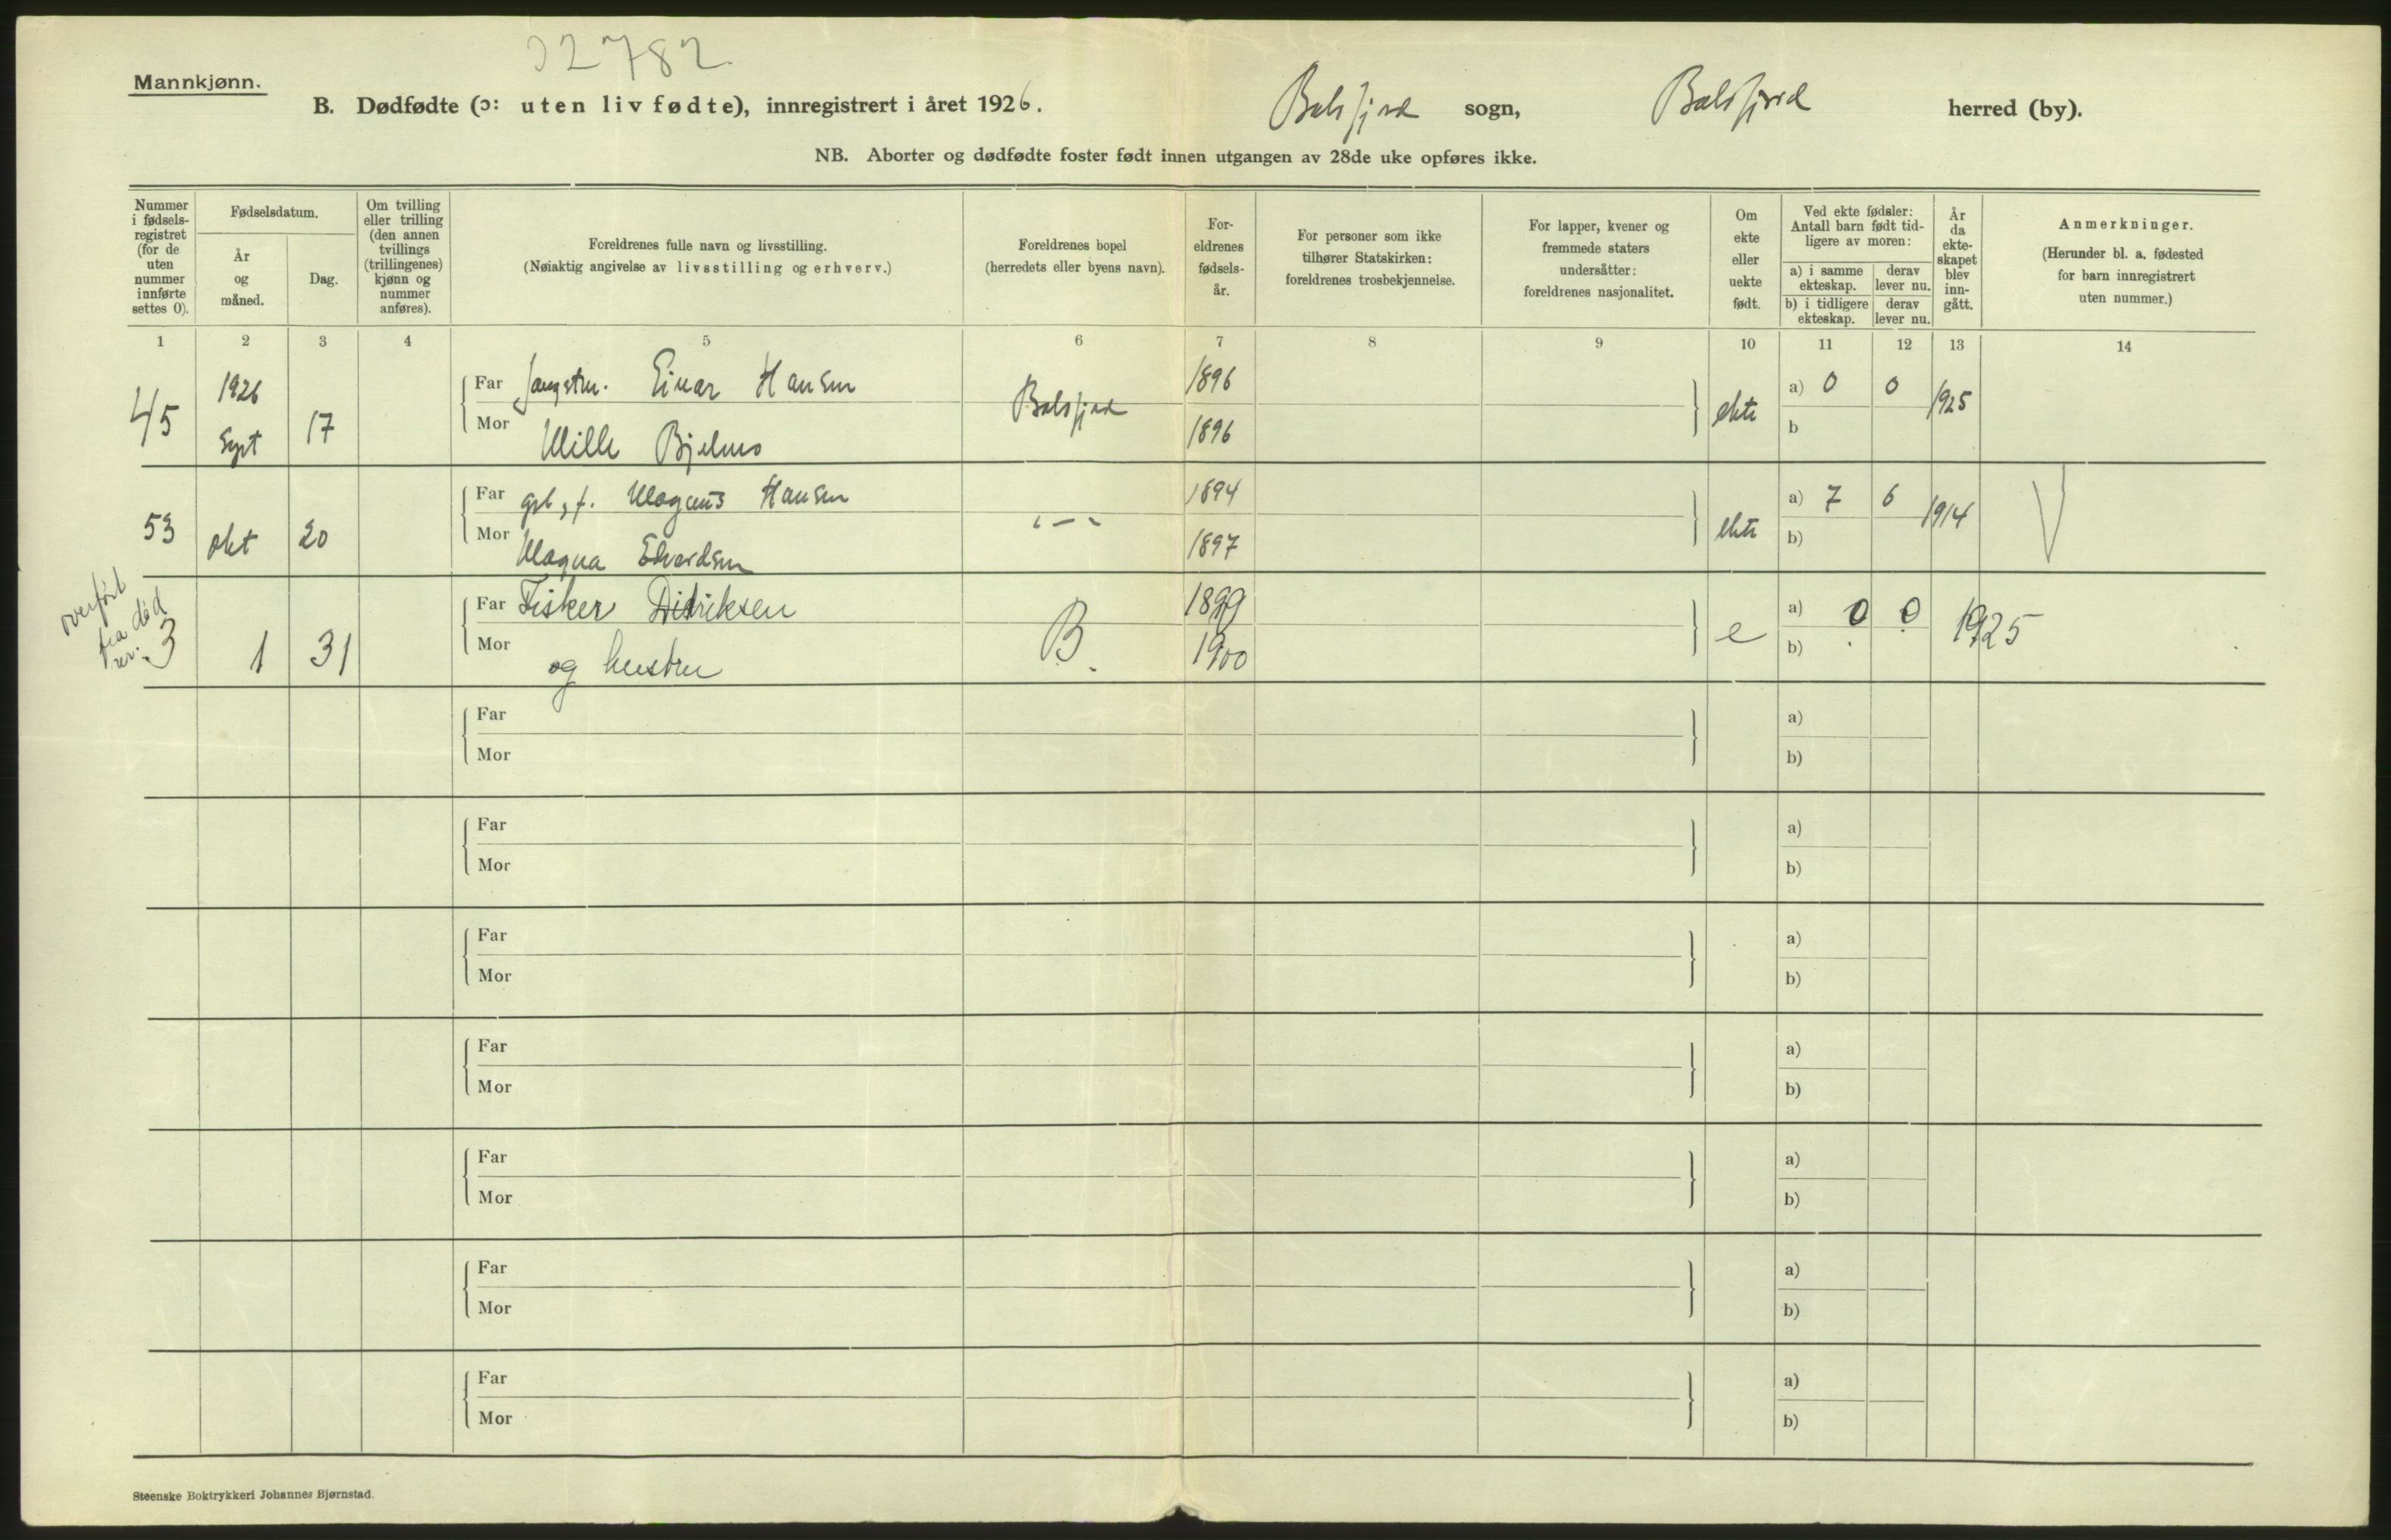 2782
Mannkjønn.
B. Dødfødte (ɔ: uten liv fødte), innregistrert i året 1926. Balsfjord sogn, Balsfjord herred (by).
NB. Aborter og dødfødte foster født innen utgangen av 28de uke opføres ikke.
Nummer i fødsels-registret (for de uten nummer innførte settes 0). Fødselsdatum. År og måned. Dag. Om tvilling eller trilling (den annen tvillings (trillingenes) kjønn og nummer anføres). Foreldrenes fulle navn og livsstilling. (Nøiaktig angivelse av livsstilling og erhverv.) Foreldrenes bopel (herredets eller byens navn). For-eldrenes fødsels-år. For personer som ikke tilhører Statskirken: foreldrenes trosbekjennelse. For lapper, kvener og fremmede staters undersåtter: foreldrenes nasjonalitet. Om ekte eller uekte født. Ved ekte fødsler: Antall barn født tid-ligere av moren: a) i samme ekteskap. derav lever nu. b) i tidligere ekteskap. derav lever nu. År da ekte-skapet blev inn-gått. Anmerkninger. (Herunder bl. a. fødested for barn innregistrert uten nummer.)
1 2 3 4 5 6 7 8 9 10 11 12 13 14
45 1926 Sept 17 Far Einar Hansen Balsfjord 1896 ekte a) 0 0 1925
Mor Mille 1896 b
53 okt 20 Far Magnus Hansen "—" 1894 ekte a) 7 6 1914
Mor Magna Edvardsen 1897 b)
overført fra død
3 1 31 Far Fisker Didriksen B. 1899 e a) 0 0 1925
Mor og hustru 1900 b)
Far a)
Mor b)
Far a)
Mor b)
Far a)
Mor b)
Far a)
Mor b)
Far a)
Mor b)
Far a)
Mor b)
Far a)
Mor b)
Steenske Boktrykkeri Johannes Bjørnstad.